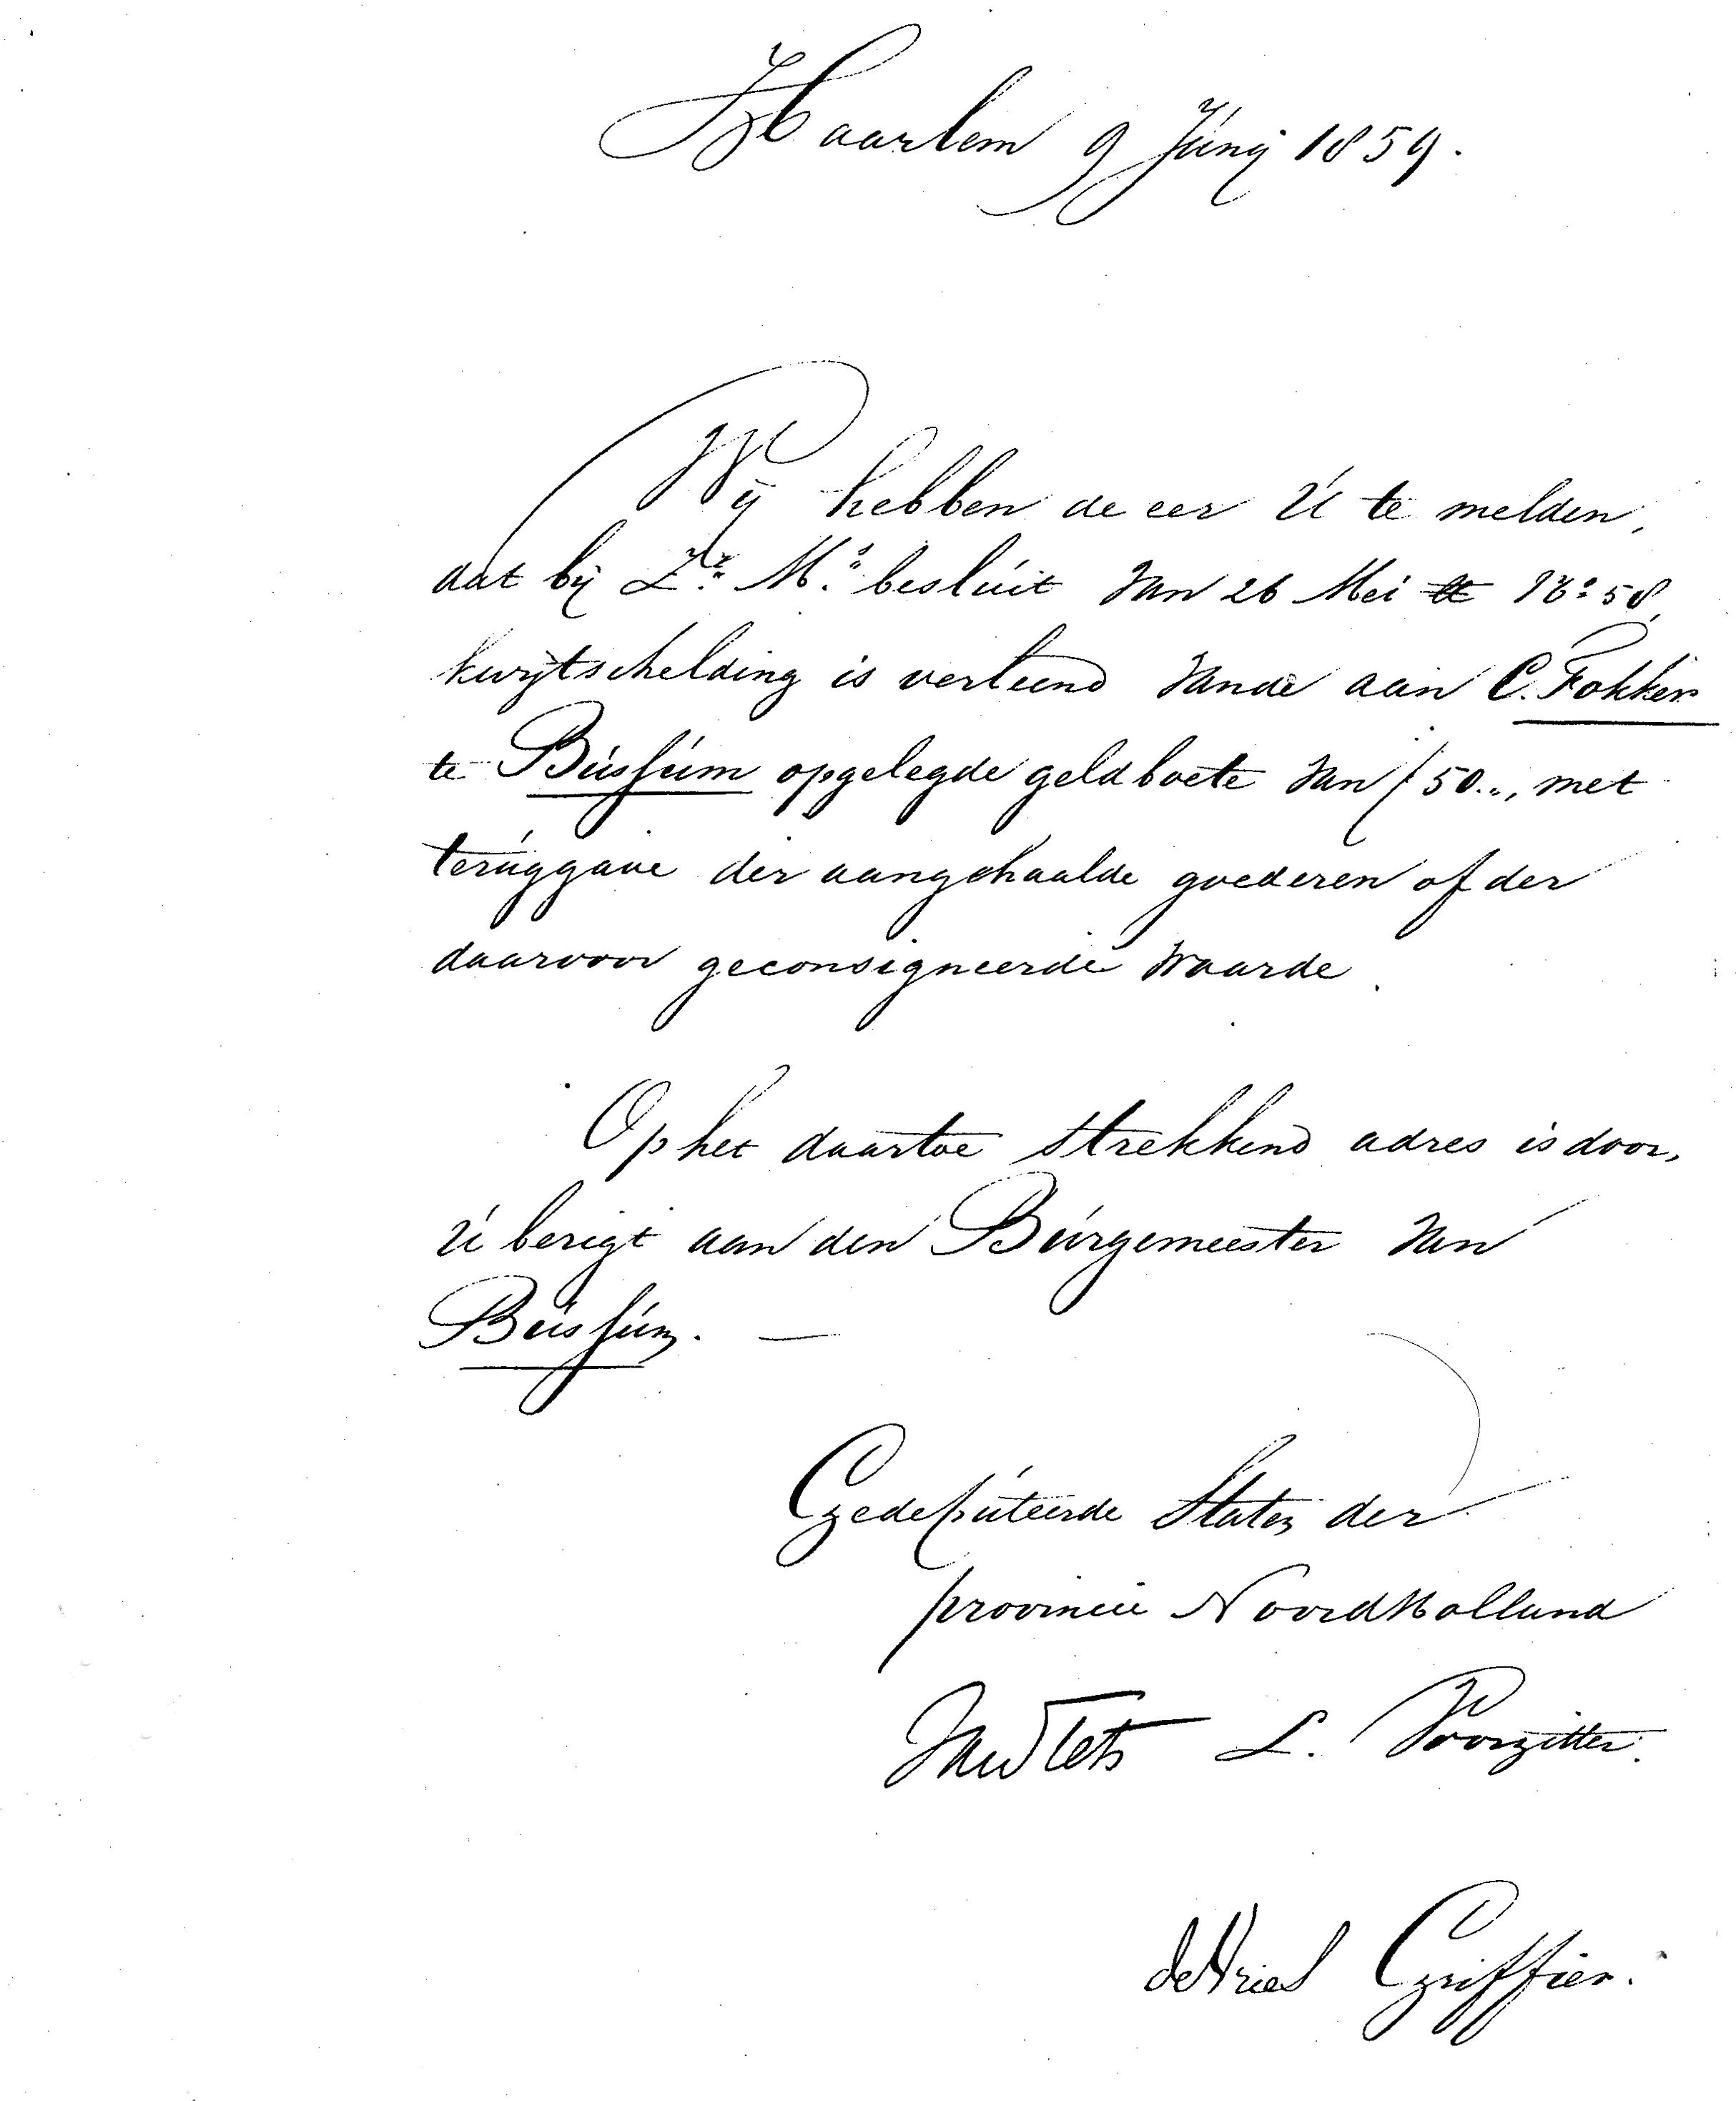 Haarlem 9 Junij 1859.
Wij hebben de eer U te melden,
dat bij Zr. Ms. besluit van 26 Mei tt No 58,
kwijtschelding is verleend van de aan C. Fokker
te Bussum opgelegde geldboete van f 50.-, met
teruggave der aangehaalde goederen of der
daarvoor geconsigneerde waarde.
Op het daartoe strekkend adres is door
U berigt aan den Burgemeester van
Bussum. —
Gedeputeerde Staten der
provincie Noord Holland
Van Tets L. Voorzitter.
de Vries Griffier.